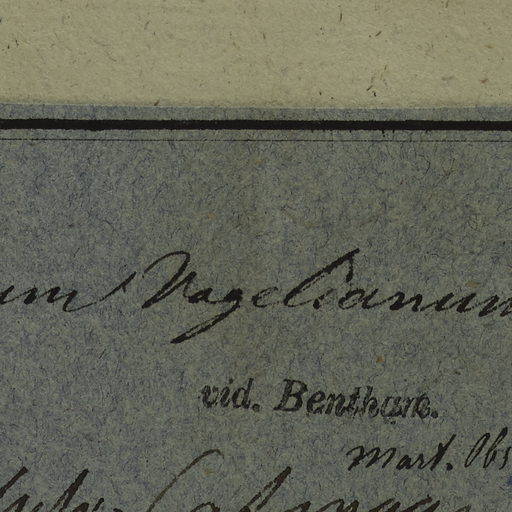 um Vogelianum
vid. Bentham.
Mart. Obs